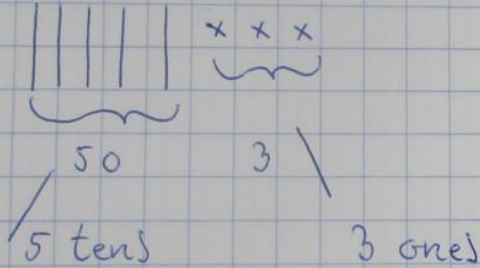 x x x
50 3
5 tens 3 ones